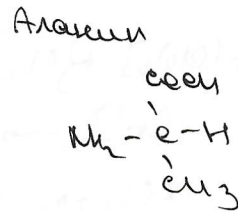 Аланин
COOH
NH₂ - C - H
CH3